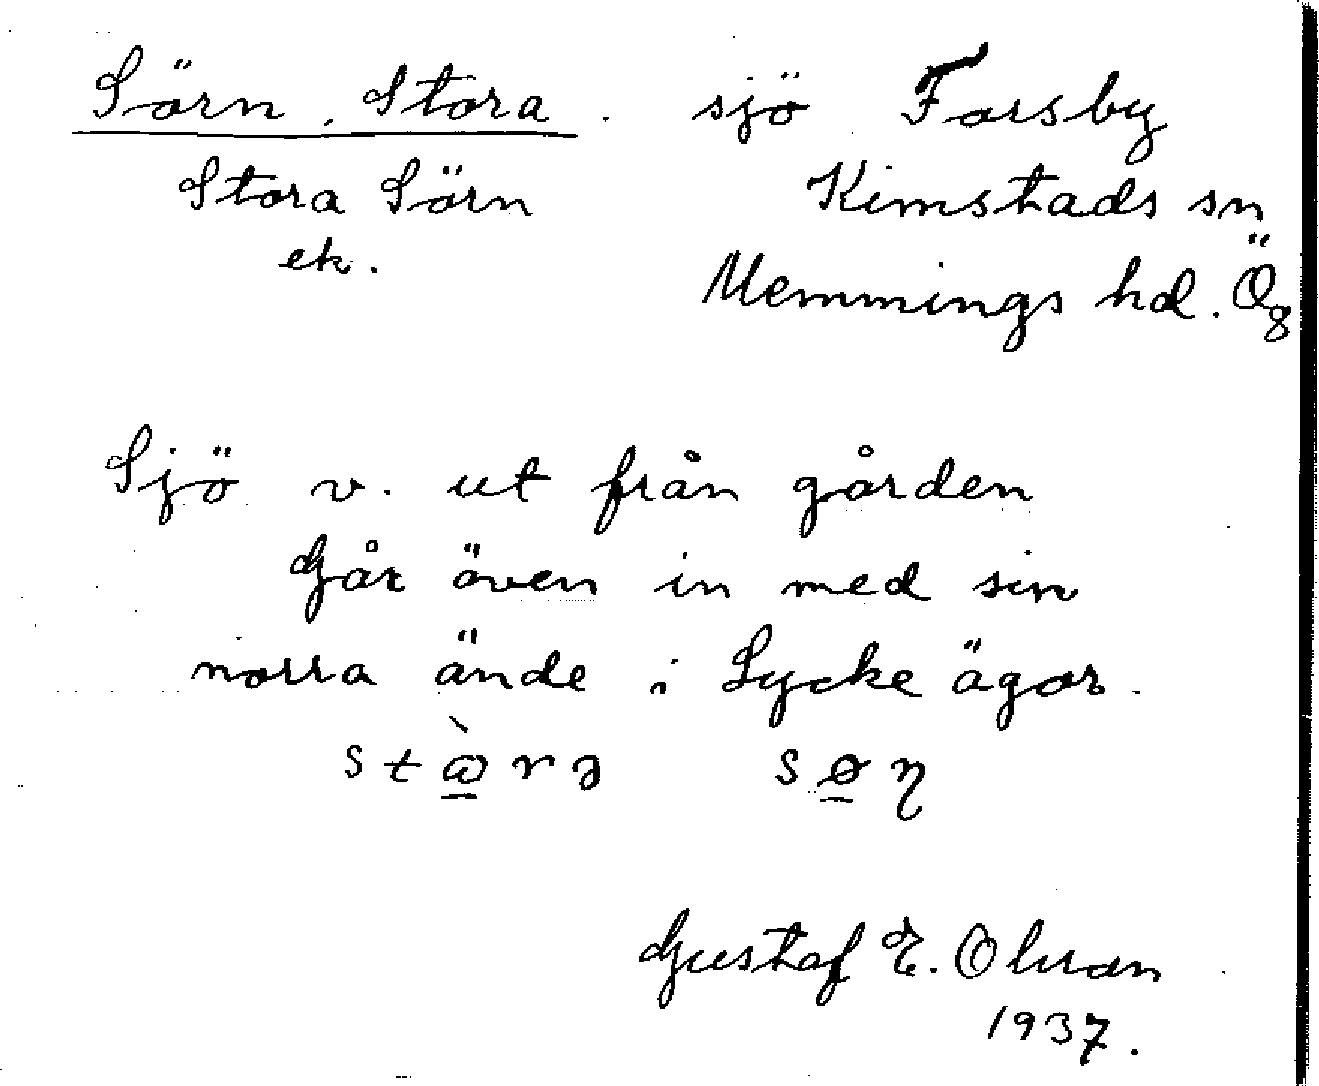 Sörn, Stora. sjö Forsby
Stora Sörn Kimstads sn
ek. Memmings hd. Ög
Sjö v. ut från gården
Går även in med sin
norra ände i Lycke ägor.
Gustaf E.
1937.